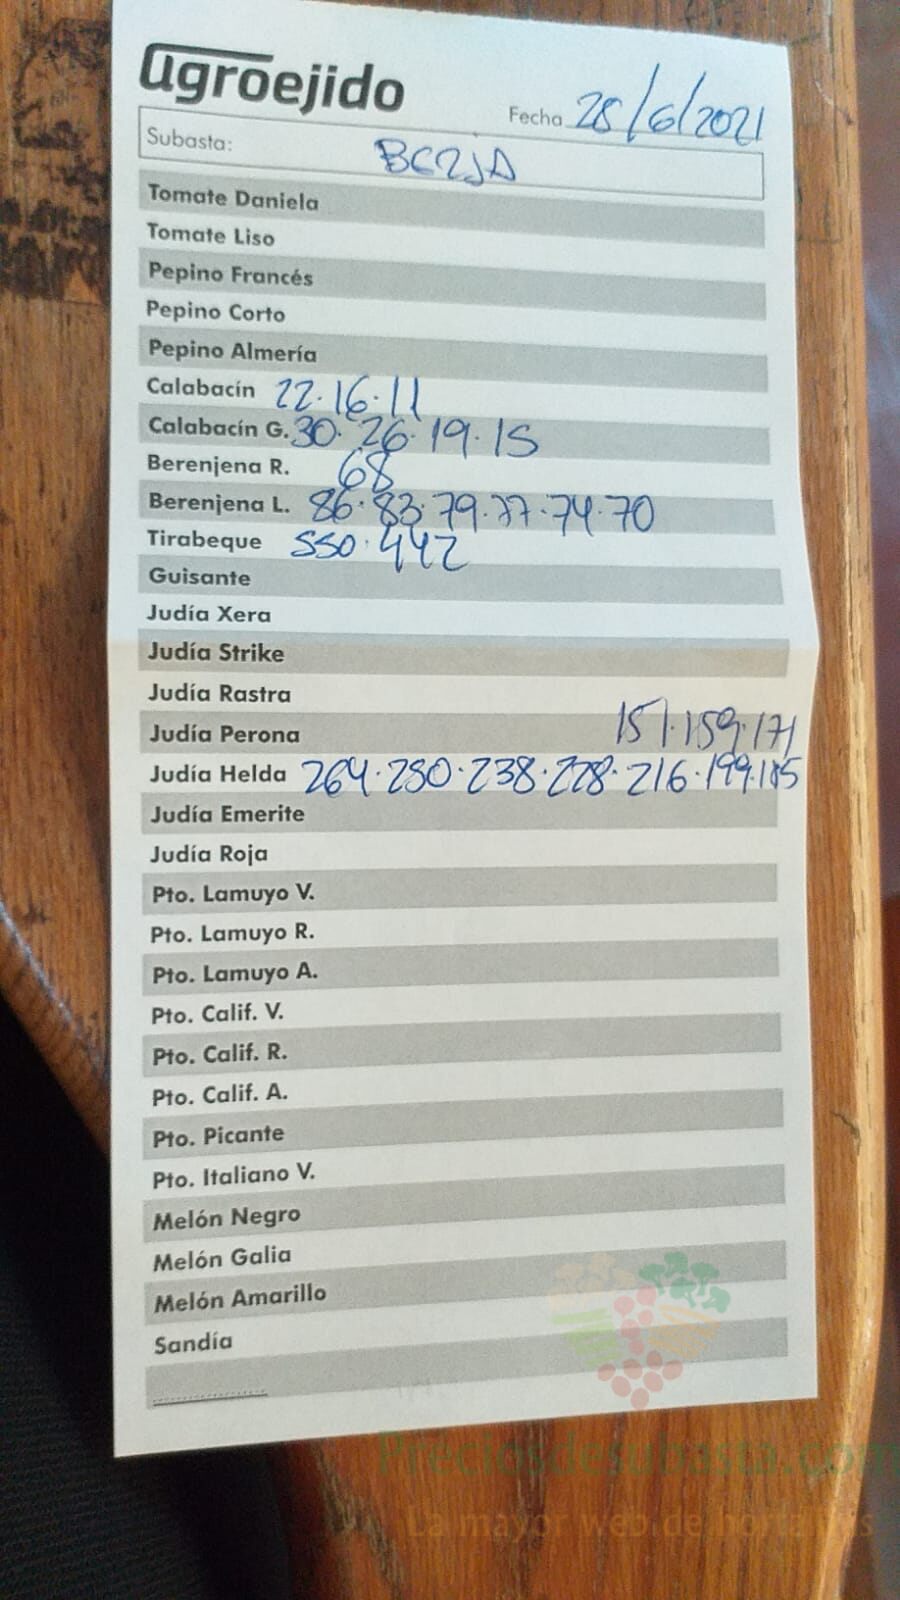 agroejido
Fecha 28/6/2021
Subasta: BERJA
Tomate Daniela
Tomate Liso
Pepino Francés
Pepino Corto
Pepino Almería
Calabacín 22.16.11
Calabacín G. 30.26.19.15
Berenjena R. 68
Berenjena L. 86.83.79.77.74.70
Tirabeque 550.442
Guisante
Judía Xera
Judía Strike
Judía Rastra
Judía Perona 151.159.171
Judía Helda 264.250.238.228.216.199.185
Judía Emerite
Judía Roja
Pto. Lamuyo V.
Pto. Lamuyo R.
Pto. Lamuyo A.
Pto. Calif. V.
Pto. Calif. R.
Pto. Calif. A.
Pto. Picante
Pto. Italiano V.
Melón Negro
Melón Galia
Melón Amarillo
Sandía
Preciosdesubasta.com
La mayor web de hortalizas